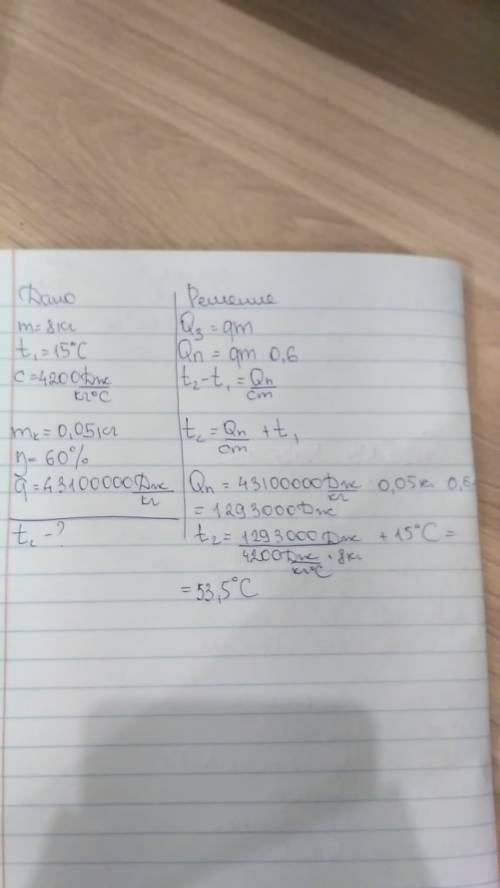 Дано
m=8кг
t₁=15°C
c=4200 Дж/кг°C
mₖ=0,05кг
η=60%
q=43100000 Дж/кг
t₂-?
Решение
Qз=qm
Qп=qm 0,6
t₂-t₁=Qп/cm
t₂=Qп/cm+t₁
Qп=43100000 Дж/кг · 0,05кг · 0,6
=1293000Дж
t₂=1293000Дж/4200 Дж/кг°C · 8кг+15°C=
=53,5°C